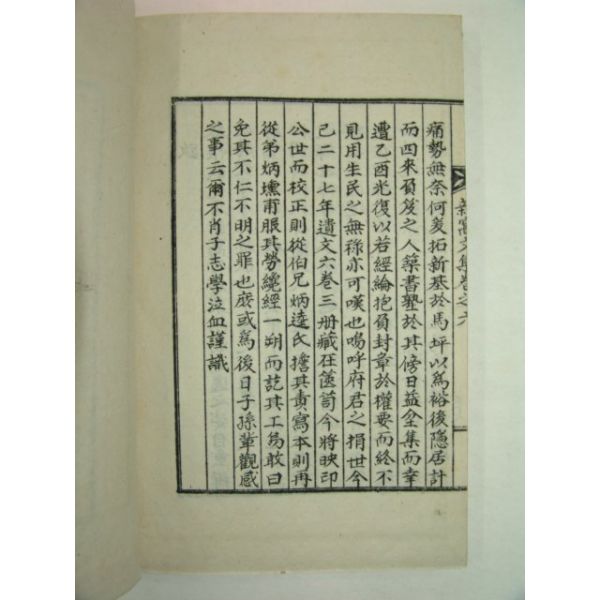 痛勢無奈何爰拓新基於馬坪以爲裕後隱居計
而四來負笈之人築書塾於其傍日益坌集而幸
遭乙酉光復以若經綸抱負封章於權要而終不
見用生民之無祿亦可嘆也嗚呼府君之捐世今
已二十七年遺文六卷三册藏在篋笥今將映印
公世而校正則從伯兄炳逵氏擔其責寫本則再
從弟炳壎甫服其勞纔經一朔而訖其工焉敢曰
免其不仁不明之罪也庶或爲後日子孫輩觀感
之事云爾不肖子志學泣血謹識
文集卷之六